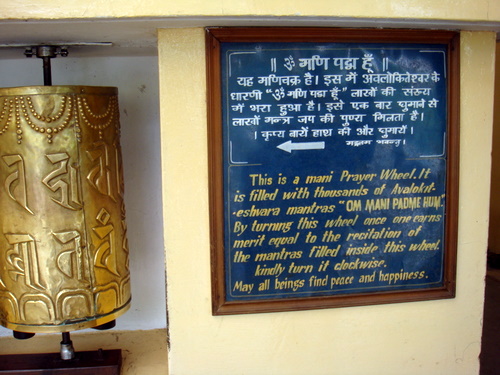 ॥ ॐ मणि पद्मे हूँ ॥
यह मणिचक्र है। इस में अवलोकितेश्वर के
धारणी "ॐ मणि पद्मे हूँ" लाखों की संख्य
में भरा हुआ है। इसे एक बार घुमाने से
लाखों मन्त्र जप की पुण्य मिलता है।
। कृपया बायें हाथ की और घुमायें।
This is a mani Prayer Wheel. It
is filled with thousands of Avalokit-
-eshvara mantras "OM MANI PADME HUM."
By turning this wheel once one earns
merit equal to the recitation of
the mantras filled inside this wheel.
kindly turn it clockwise.
May all beings find peace and happiness.